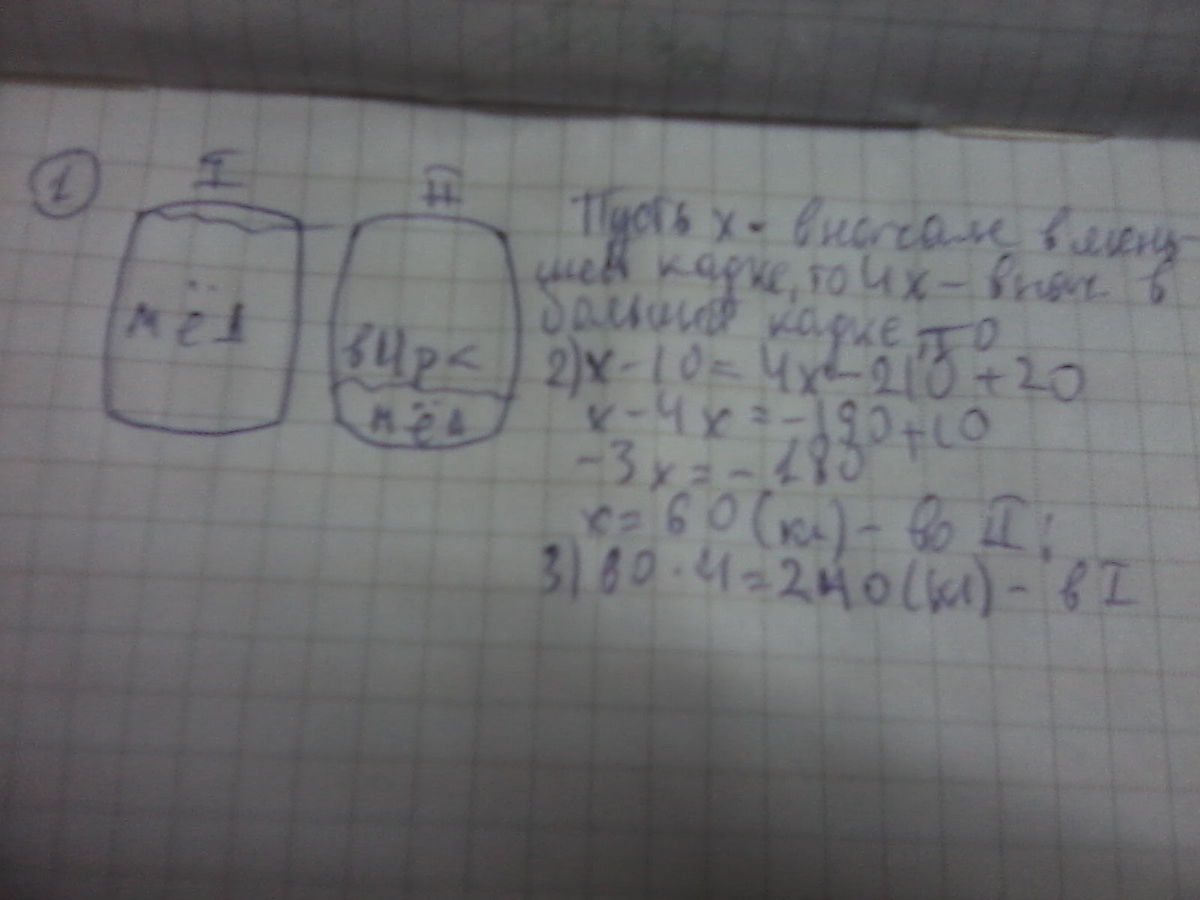 1
I
II
мёд
в 4 р <
мёд
Пусть x - вначале в мень-
шей кадке, то 4x - внач в
большей кадке
2) x - 10 = 4x - 210 + 20
x - 4x = -190 + 10
-3x = -180
x = 60 (кг) - во II;
3) 60 · 4 = 240 (кг) - в I